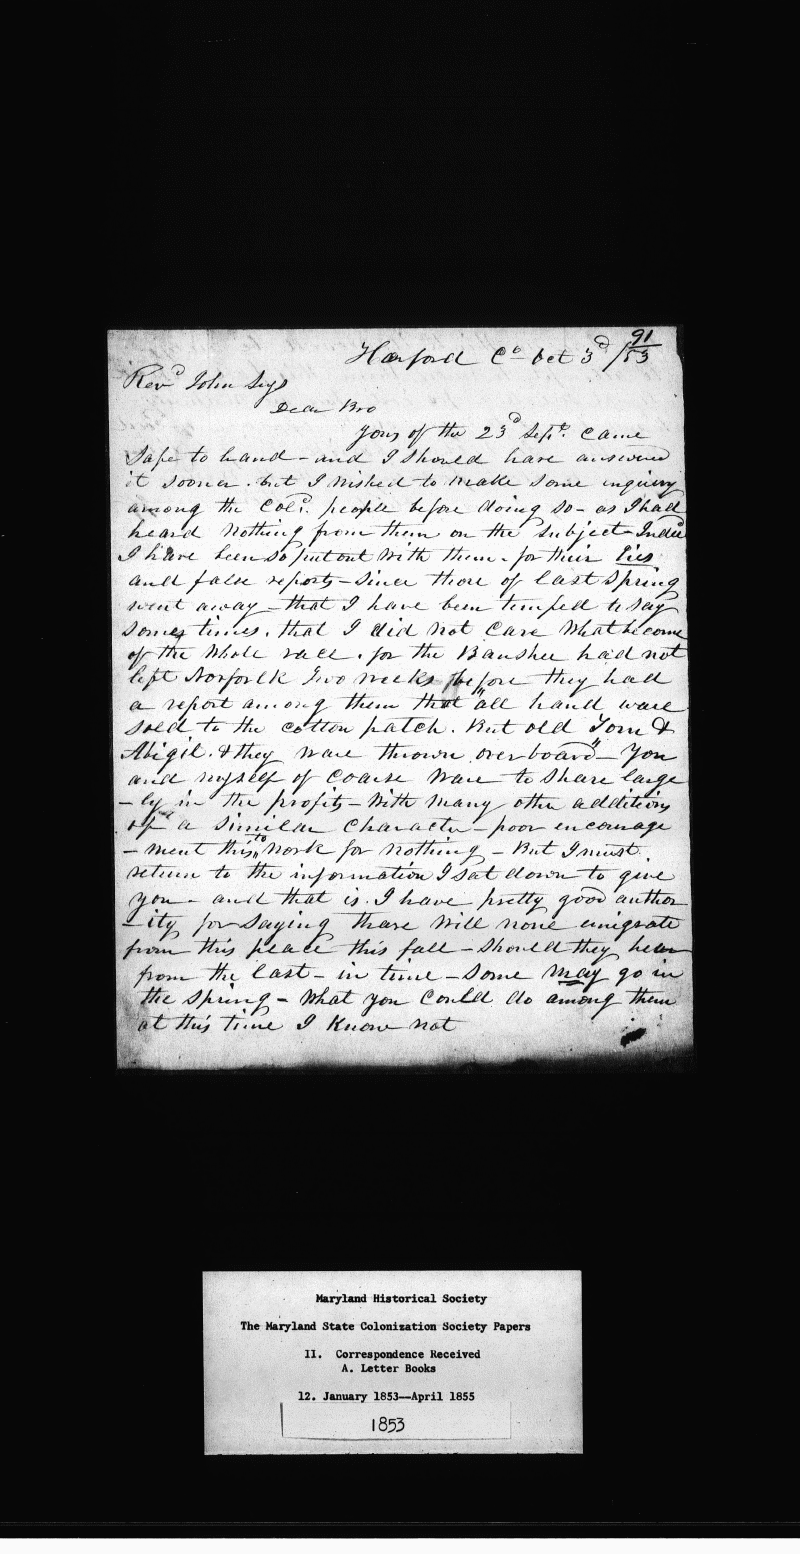 91
Harford Co Oct 3d /53
Revd John Seys
Dear Bro
Yours of the 23d Sept. came
safe to hand - and I should have answered
it sooner. but I wished to make some inquiry
among the Cold. people before doing so - as I had
heard nothing from them on the subject - Indeed
I have been so put out with them - for their lies
and false reports - since those of last spring
went away - that I have been temped to say
some times. that I did not care what become
of the whole race. for the Banshee had not
left Norfolk Two weeks before they had
a report among them that "all hand ware
sold to the cotton patch. But old Tom &
Abigil. & they ware thrown overboard" - You
and myself of coarse ware to share large
- ly in the profits - with many other additions
of a similar character - poor encourage
- ment this, to work for nothing - But I must
return to the information I sat down to give
you - and that is. I have pretty good author
- ity for saying thare will none emigrate
from this place this fall - should they hear
from the last - in time - some may go in
the spring - What you could do among them
at this time I know not
Maryland Historical Society
The Maryland State Colonization Society Papers
11. Correspondence Received
A. Letter Books
12. January 1853--April 1855
1853